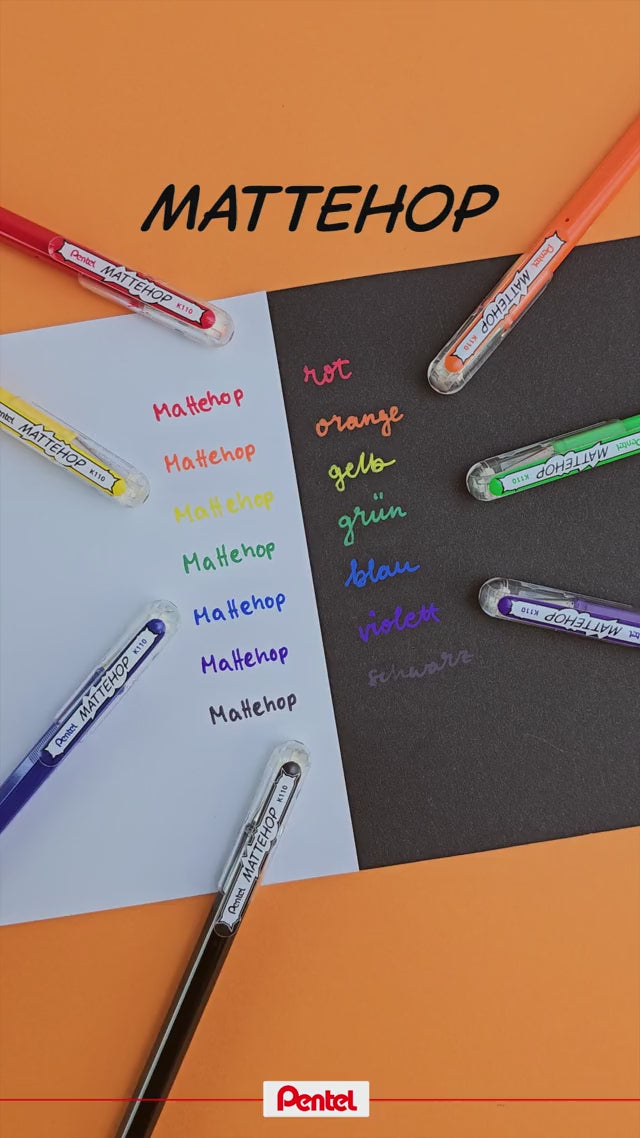 MATTEHOP
Pentel MATTEHOP K110
Pentel MATTEHOP K110
rot
Mattehop
orange
MATTEHOP K110
Mattehop
gelb
Pentel MATTEHOP K110
Mattehop
grün
Mattehop
blau
Pentel MATTEHOP K110
Mattehop
violett
Pentel MATTEHOP K110
Mattehop
schwarz
Mattehop
Pentel MATTEHOP K110
Pentel